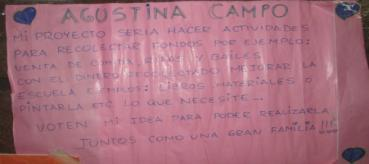 AGUSTINA CAMPO
MI PROYECTO SERIA HACER ACTIVIDADES
PARA RECOLECTAR FONDOS POR EJEMPLO:
VENTA DE COMIDA, RIFAS Y BAILES
CON EL DINERO RECOLECTADO MEJORAR LA
ESCUELA EJEMPLOS: LIBROS, MATERIALES O
PINTARLA ETC LO QUE NECESITE...
VOTEN MI IDEA PARA PODER REALIZARLA
JUNTOS COMO UNA GRAN FAMILIA !!!